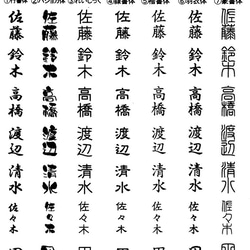 ①行書体 ②バショウ体 ③れいしっく ④隷書体 ⑤楷書体 ⑥羽衣体 ⑦篆書体
佐藤 佐藤 佐藤 佐藤 佐藤 佐藤 佐藤
鈴木 鈴木 鈴木 鈴木 鈴木 鈴木 鈴木
高橋 高橋 高橋 高橋 高橋 高橋 高橋
渡辺 渡辺 渡辺 渡辺 渡辺 渡辺 渡辺
清水 清水 清水 清水 清水 清水 清水
佐々木 佐々木 佐々木 佐々木 佐々木 佐々木 佐々木